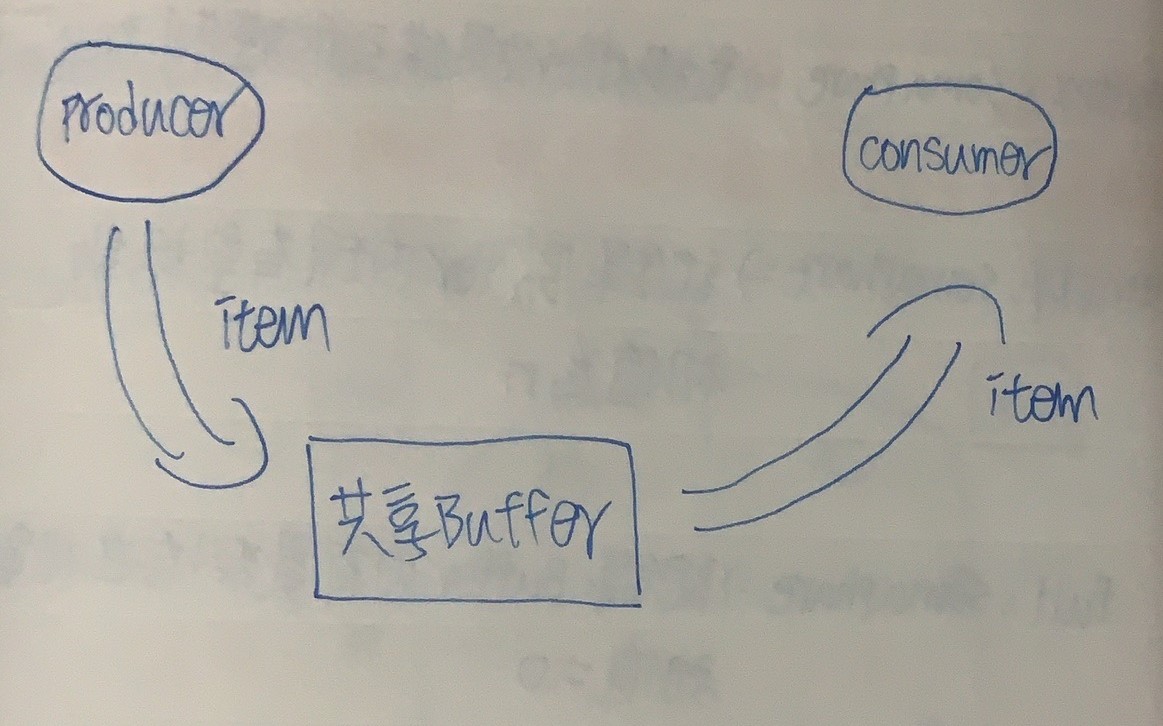 producer
consumer
item
item
共享Buffer